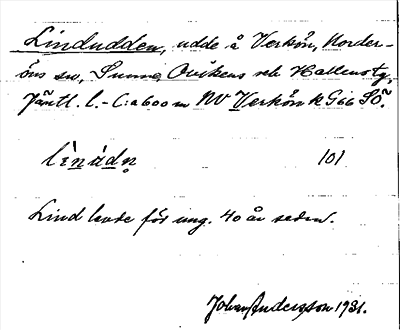 Lindudden, udde å Verkön, Norder-
öns sn, Sunne, Ovikens och Hallens tg,
Jämtl. l. - C:a 600 m NV Verkön K G66 SÖ.
lìnùdn̥ 101
Lind levde för ung. 40 år sedan.
Johan Andersson 1931.